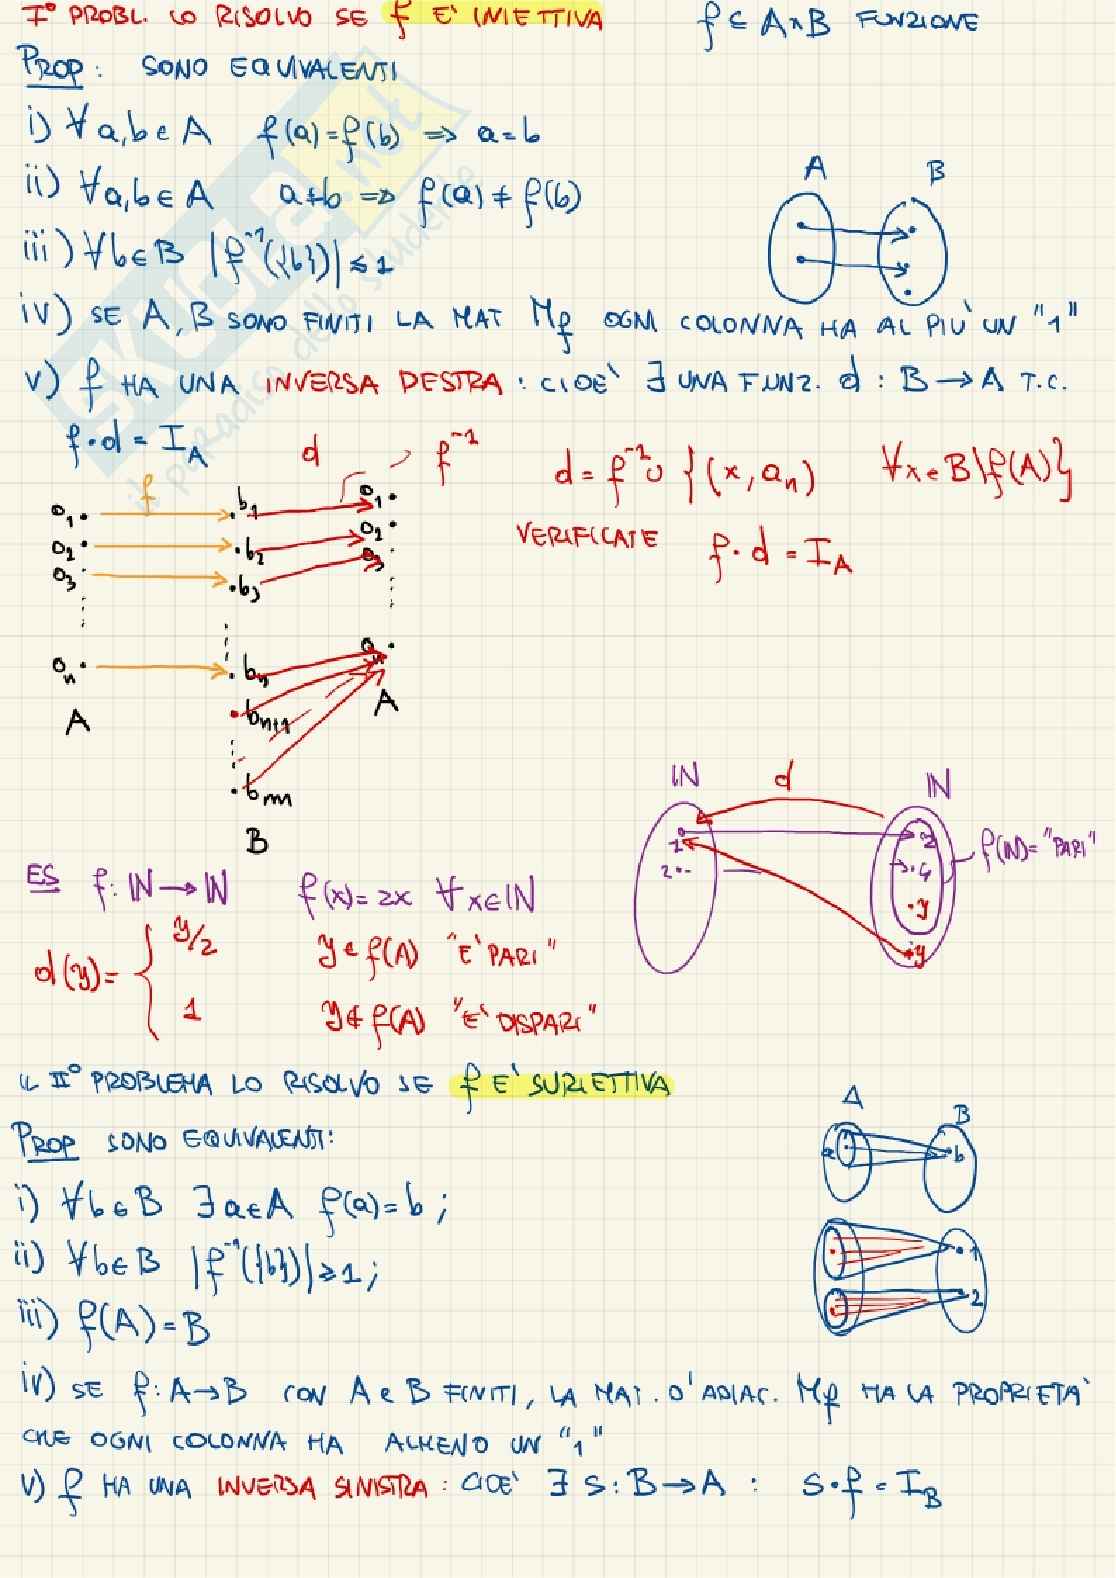 I° PROBL. LO RISOLVO SE f E' INIETTIVA f ⊆ A×B FUNZIONE
PROP: SONO EQUIVALENTI
i) ∀a,b∈A f(a)=f(b) ⇒ a=b
ii) ∀a,b∈A a≠b ⇒ f(a)≠f(b)
A B
iii) ∀b∈B |f⁻¹({b})|≤1
iv) SE A,B SONO FINITI LA MAT Mf OGNI COLONNA HA AL PIU' UN "1"
v) f HA UNA INVERSA DESTRA: CIOE' ∃ UNA FUNZ. d: B→A T.C.
f·d = I_A
d f⁻¹ d = f⁻¹ ∪ {(x,a_n) ∀x∈B\f(A)}
f
a₁ b₁ a₁
VERIFICATE f·d = I_A
a₂ b₂ a₂
a₃ b₃ a₃
a_n b_n a_n
A b_n+1 A
b_m
B
IN d IN
1 2 f(IN)="PARI"
2 4
y
y
ES f: IN→IN f(x)=2x ∀x∈IN
d(y)= { y/2 y∈f(A) "E' PARI"
1 y∉f(A) "E' DISPARI"
IL II° PROBLEMA LO RISOLVO SE f E' SURIETTIVA
A B
PROP SONO EQUIVALENTI:
a b
i) ∀b∈B ∃a∈A f(a)=b;
ii) ∀b∈B |f⁻¹({b})|≥1;
1
2
iii) f(A)=B
iv) SE f: A→B CON A e B FINITI, LA MAT. D'ADIAC. Mf HA LA PROPRIETA'
CHE OGNI COLONNA HA ALMENO UN "1"
v) f HA UNA INVERSA SINISTRA: CIOE' ∃ s: B→A : s·f = I_B
SKUOLA.net
il paradiso dello studente